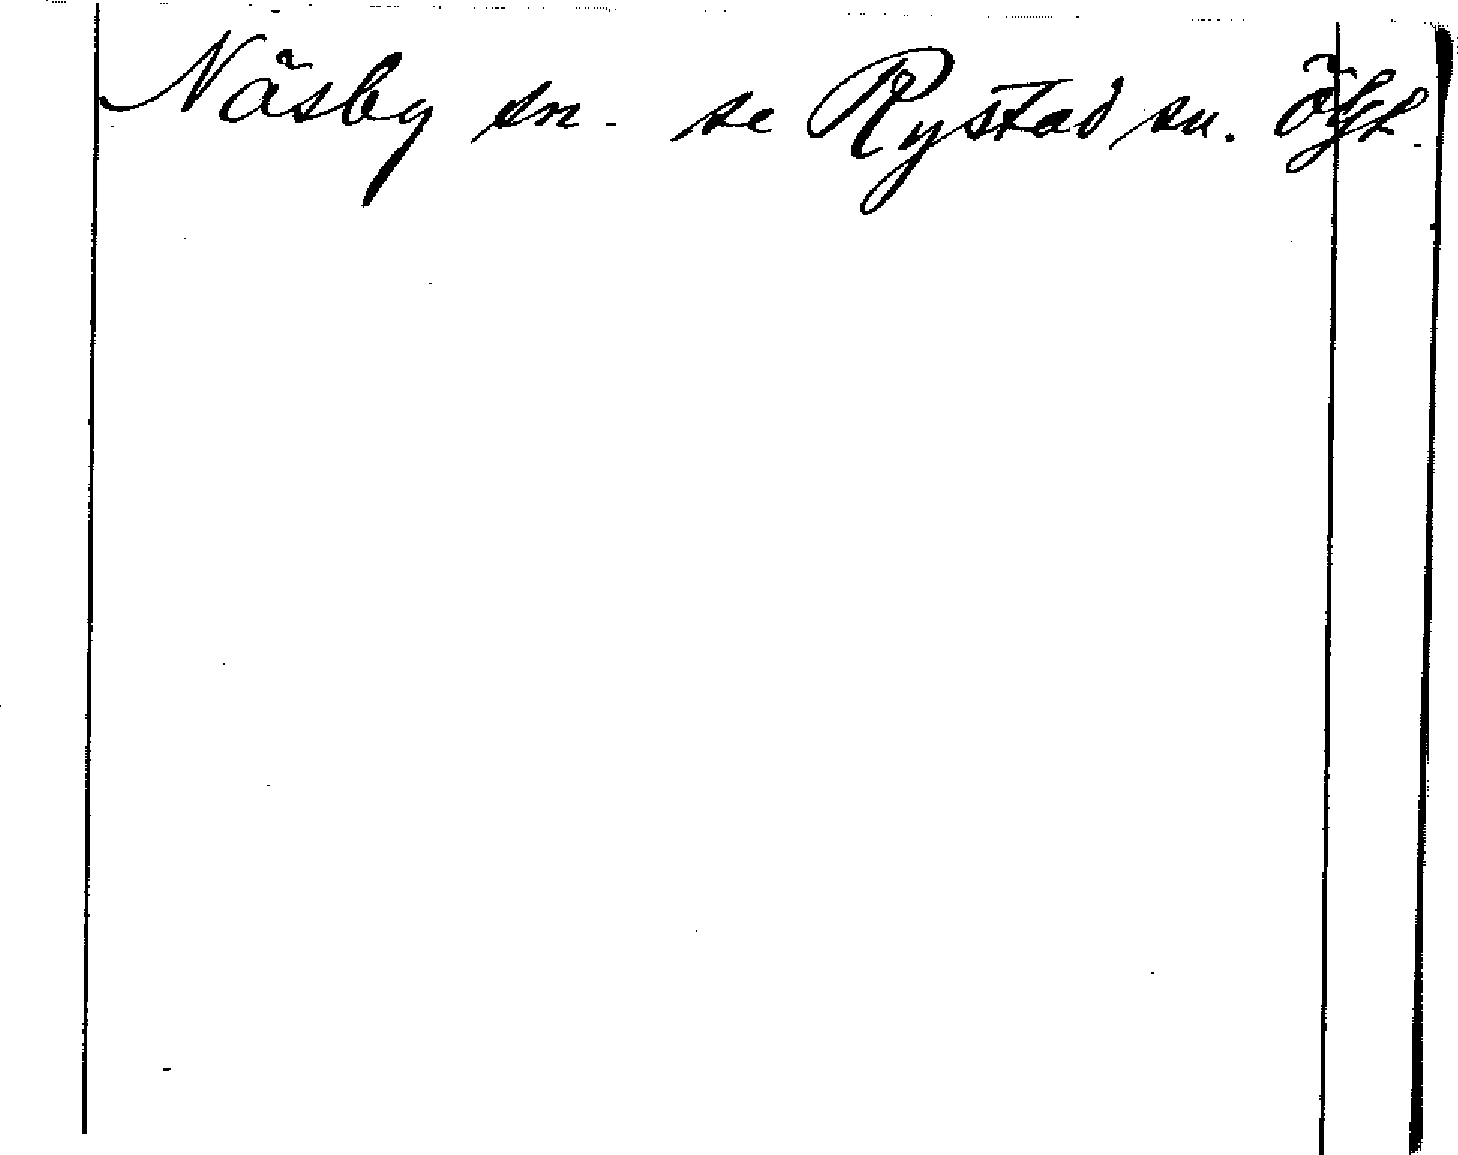 Näsby sn. se Rystad sn. Ögl